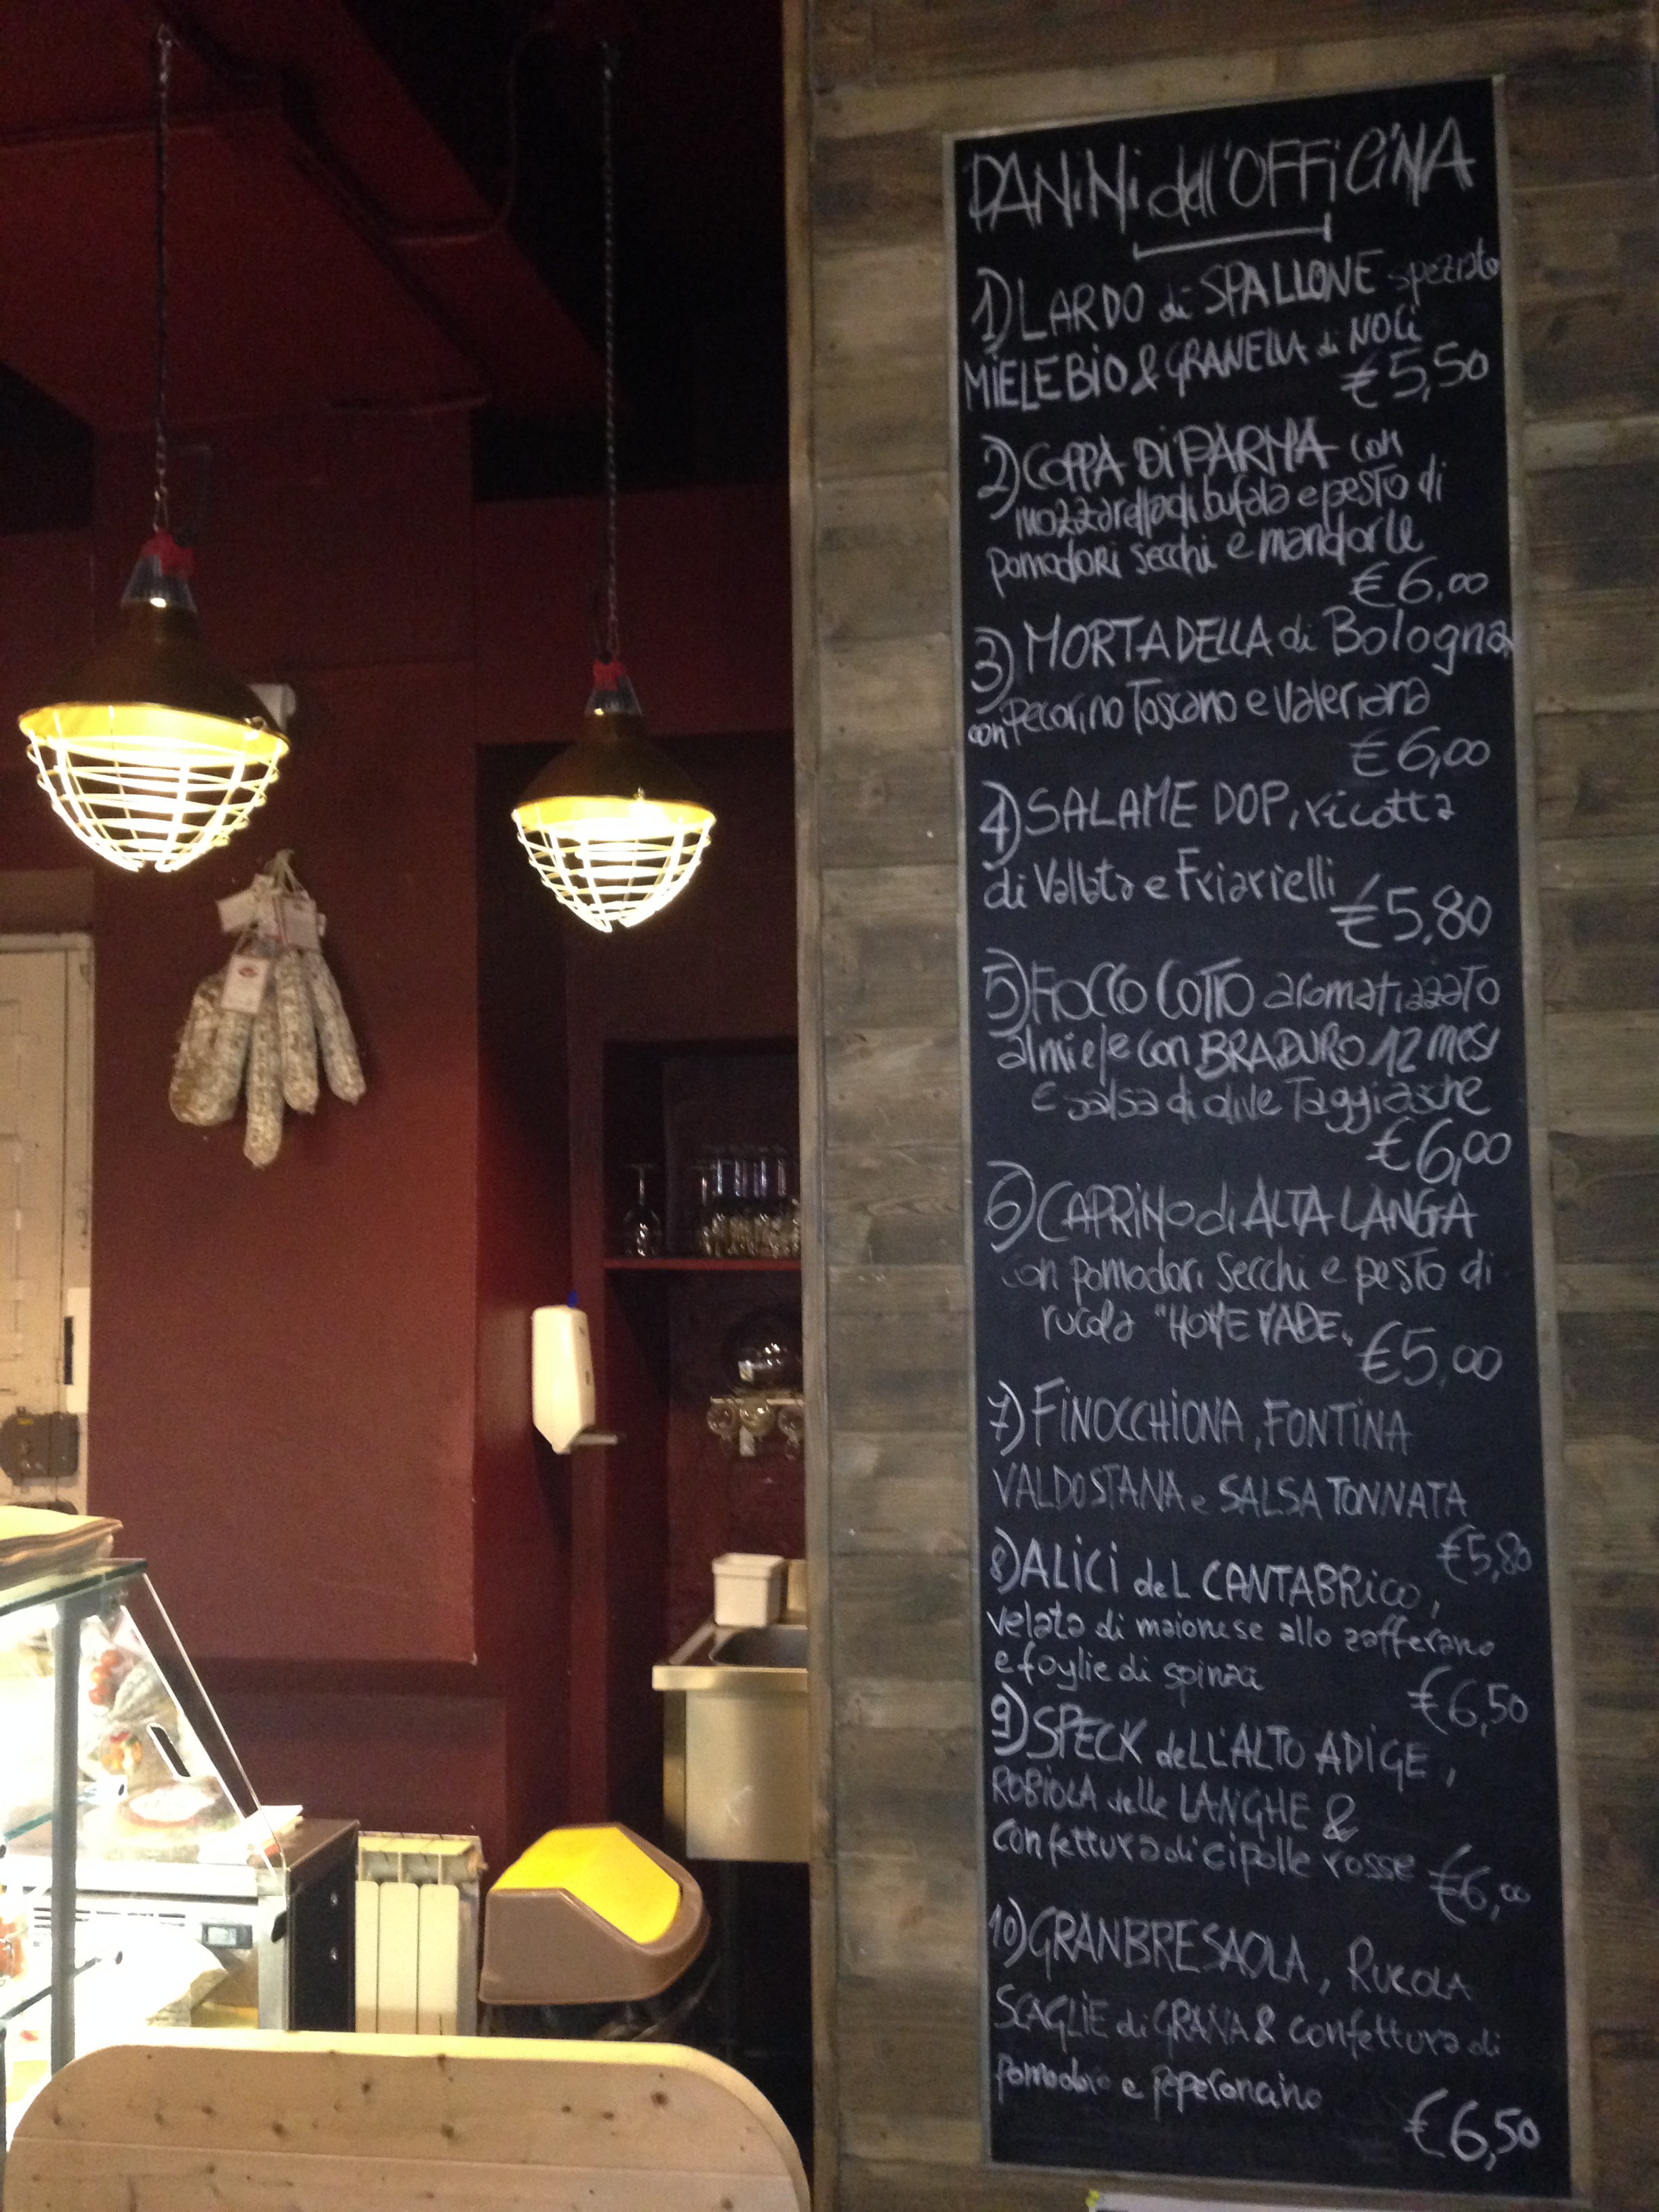 PANiNi dell'OFFiCiNA
1) LARDO di SPALLONE speziato
MiELE BiO & GRANELLA di NOCi
€5,50
2) COPPA Di PARMA con
mozzarella di bufala e pesto di
pomodori secchi e mandorle
€6,00
3) MORTADELLA di Bologna
con Pecorino Toscano e valeriana
€6,00
4) SALAME DOP, ricotta
di Vallata e Friarielli
€5,80
5) FiOCCO COTTO aromatizzato
al miele con BRADURO 12 mesi
e salsa di olive Taggiasche
€6,00
6) CAPRiNO di ALTA LANGA
con pomodori secchi e pesto di
rucola "HOME MADE"
€5,00
7) FiNOCCHiONA, FONTiNA
VALDOSTANA e SALSA TONNATA
€5,80
8) ALiCi deL CANTABRiCO,
velata di maionese allo zafferano
e foglie di spinaci
€6,50
9) SPECK deLL'ALTO ADiGE,
ROBiOLA delle LANGHE &
confettura di cipolle rosse €6,00
10) GRANBRESAOLA, RUCOLA
SCAGLIE di GRANA & confettura di
pomodoro e peperoncino
€6,50